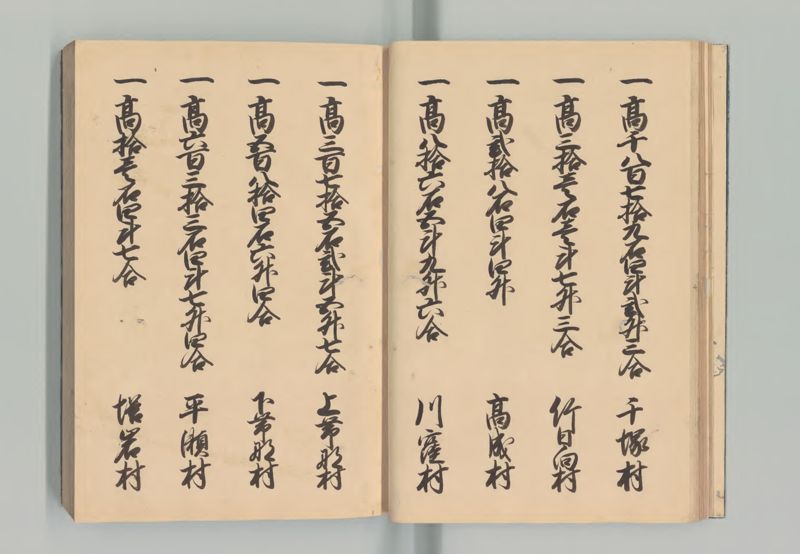 一高千八百七拾九石四斗弐升二合 千塚村
一高三拾壱石壱斗七升三合 竹日向村
一高弐拾八石四斗四升 高成村
一高八拾六石五斗九升六合 川窪村
一高三百七拾五石弐斗五升七合 上帯那村
一高五百八拾四石六升四合 下帯那村
一高六百三拾三石四斗七升四合 平瀬村
一高拾壱石四斗七合 塔岩村